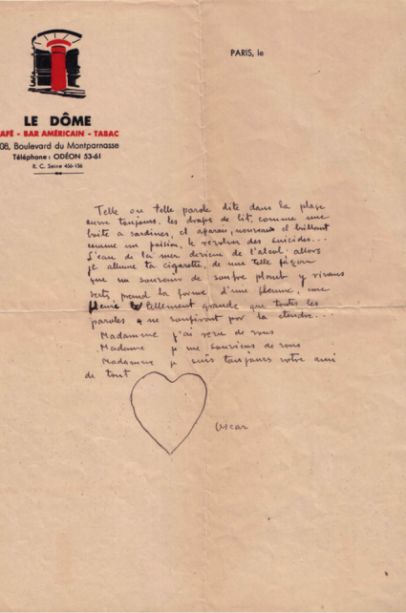 PARIS, le
LE DÔME
AFÉ - BAR AMÉRICAIN - TABAC
08, Boulevard du Montparnasse
Téléphone : ODÉON 53-61
R. C. Seine 456-156
Telle ou telle parole dite dans la plage
ouvre toujours les draps de lit, comme une
boite a sardines, et apparou, nouveau et brillant
comme un poisson, le revolver des suicides...
L'eau de la mer devient de l'alcol. allors
je allume ta cigarette, de une telle façon
que un souvenir de soufre plant y visons
verts, prend la forme d'une flemme, une
tellement grande que toutes les
paroles ne par la
Madamme j'ai reve de vous
Madamme je me souviens de vous
Madamme je suis toujours votre ami
de tout
Oscar